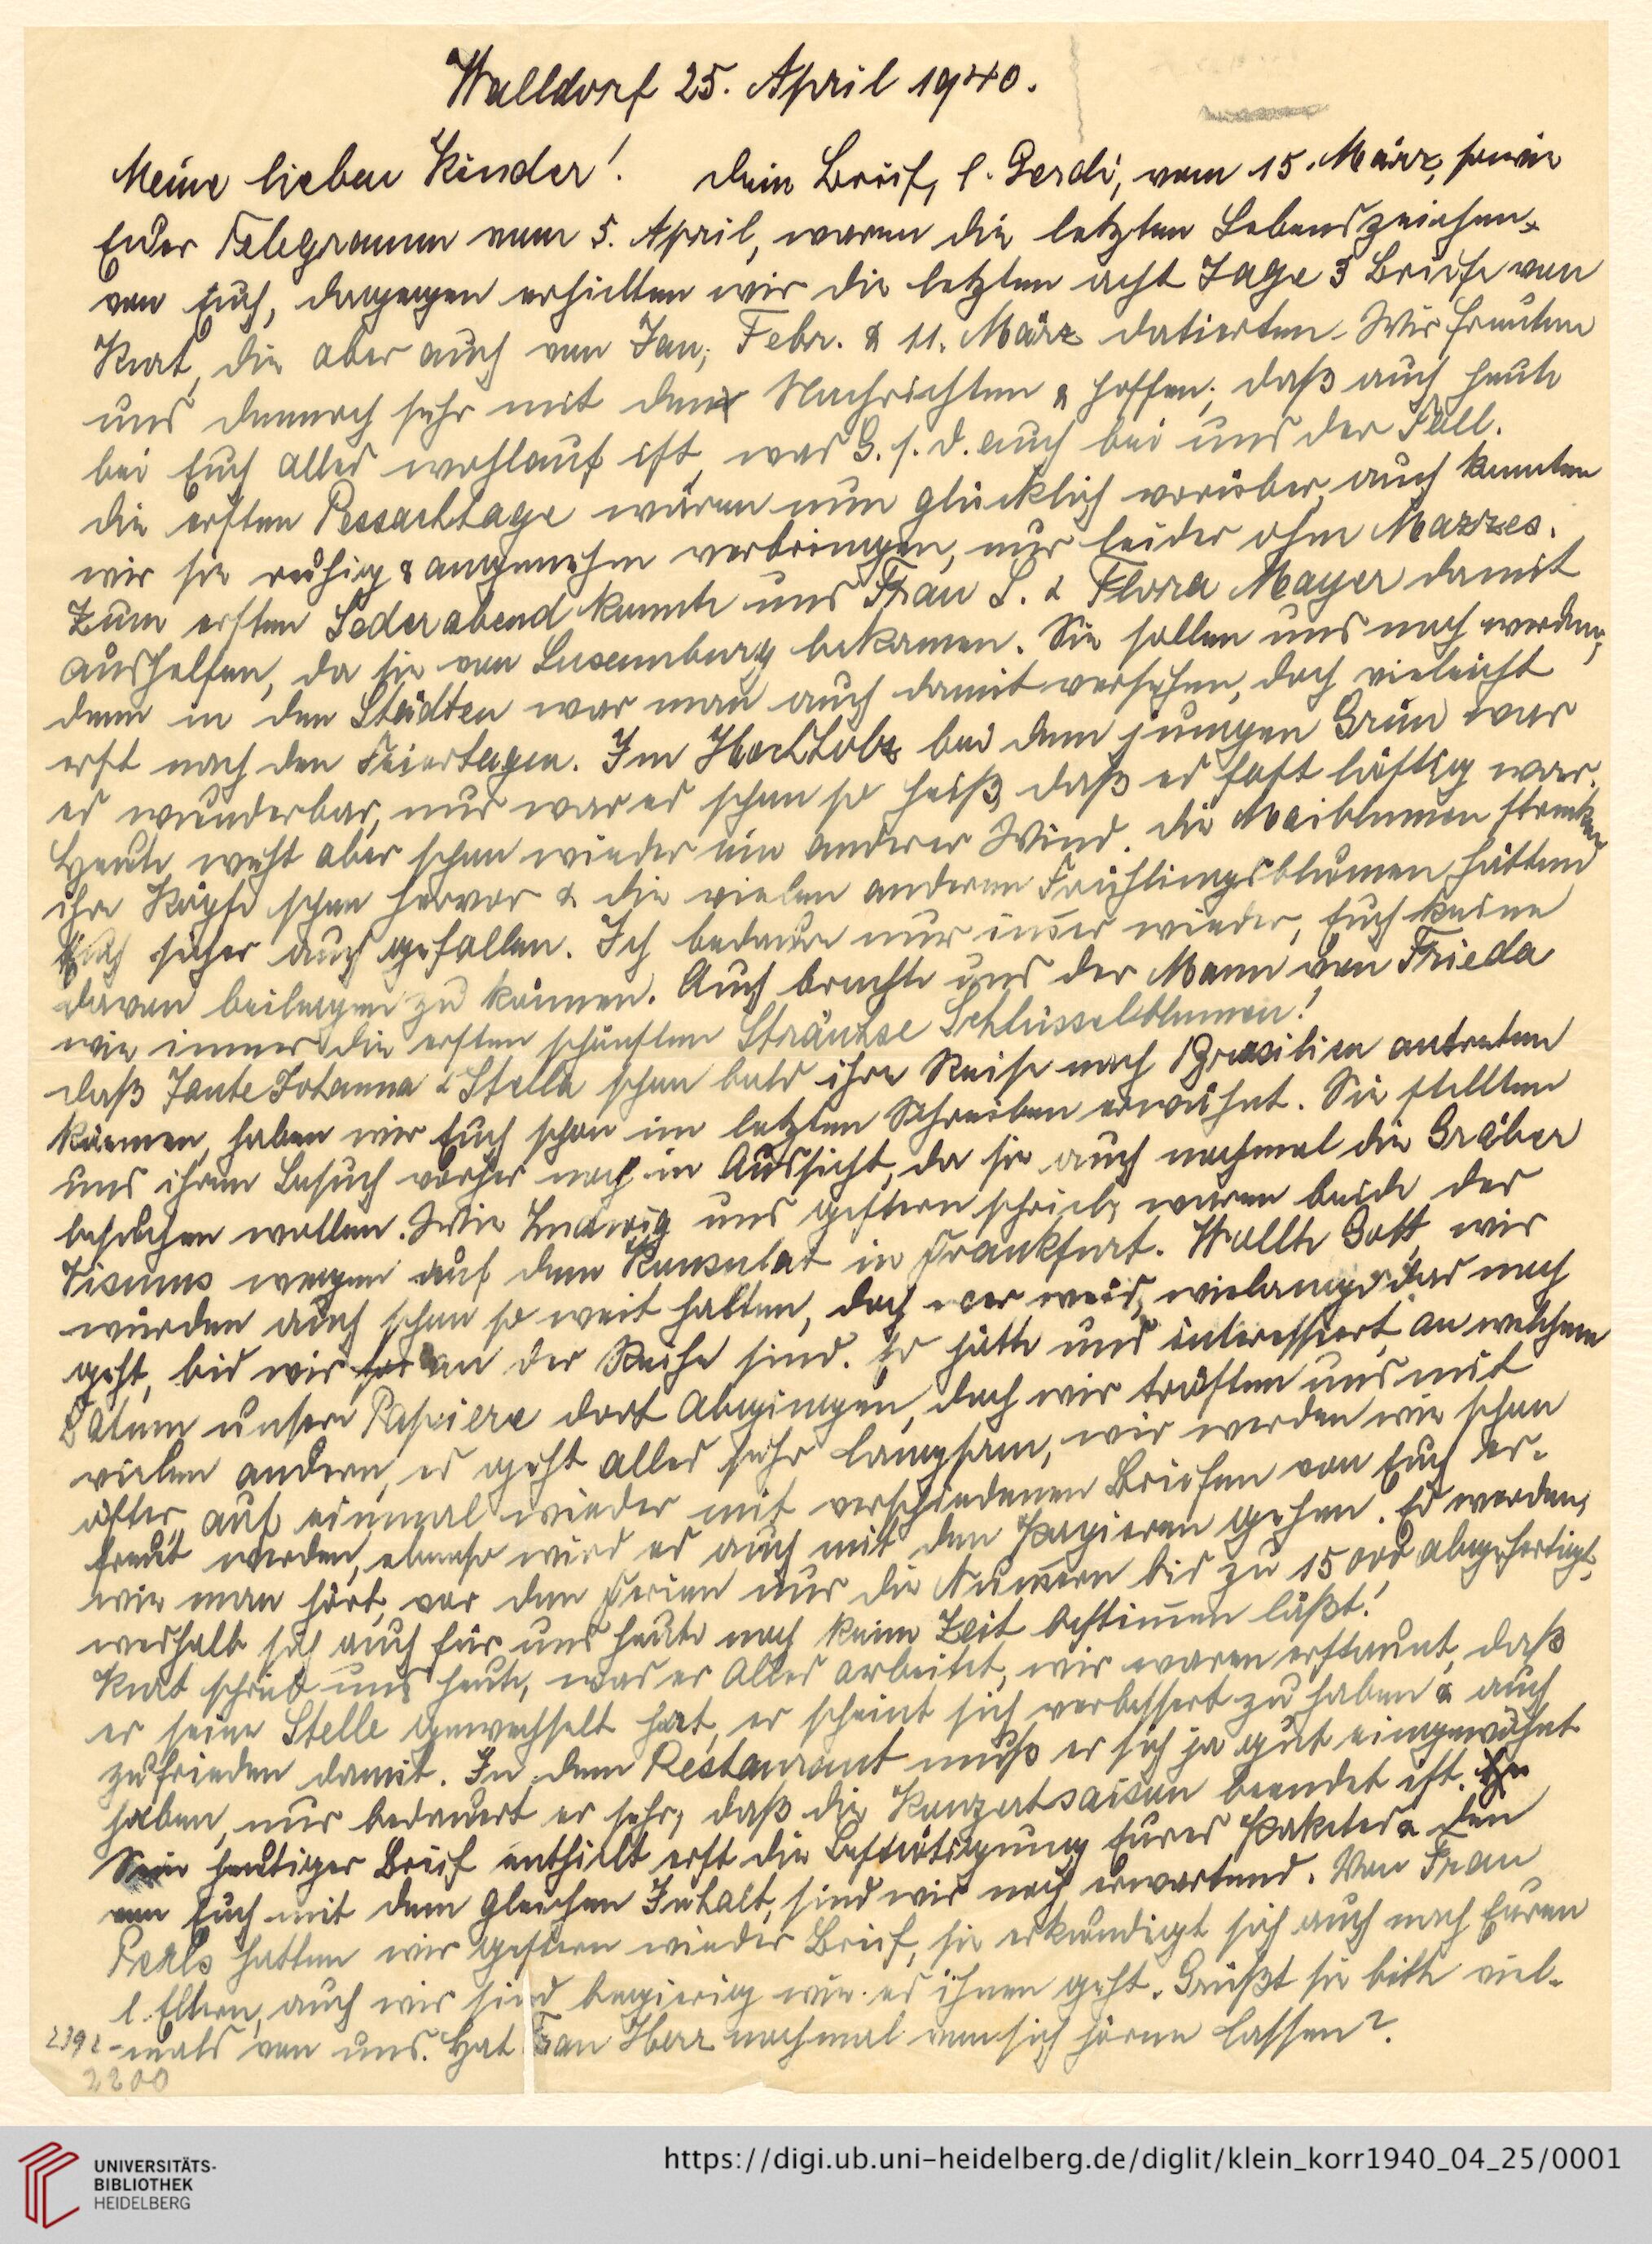 Walldorf 25. April 1940.
Meine lieben Kinder! Dein Brief, l. Gerdi, vom 15. März, sowie
Euer Telegramm vom 5. April, waren die letzten Lebenszeichen
von Euch, dagegen erhielten wir die letzten acht Tage 3 Briefe von
Kurt, die aber auch von Jan., Febr. & 11. März datierten. Wir freuten
uns dennoch sehr mit den Nachrichten & hoffen, daß auch heute
bei Euch alles wohlauf ist, was G. s. d. auch bei uns der Fall.
Die ersten Pessachtage wären nun glücklich vorüber, auch konnten
wir sie ruhig & angenehm verbringen, nur leider ohne Mazzes.
Zum ersten Sederabend konnte uns Frau S. & Flora Mayer damit
aushelfen, da sie von Luxemburg bekamen. Sie sollen uns noch werden,
denn in den Städten war man auch damit versehen, doch vieleicht
erst nach den Feiertagen. Im Hochholz bei dem jungen Grün war
es wunderbar, nur war es schon so heiß, daß es fast lästig war.
Heute weht aber schon wieder ein anderer Wind. Die Maiblumen strecken
ihre Köpfe schon hervor & die vielen anderen Frühlingsblumen hätten
Euch sicher auch gefallen. Ich bedaure nur im̄er wieder, Euch keine
davon beilegen zu können. Auch brachte uns der Mann von Frieda
wie immer die ersten schönsten Sträuße Schlüsselblumen!
Daß Tante Johanna & Stella schon bald ihre Reise nach Brasilien antreten
können, haben wir Euch schon im letzten Schreiben erwähnt. Sie stellten
uns ihren Besuch vorher noch in Aussicht, da sie auch nochmal die Gräber
besuchen wollen. Wie Ludwig uns gestern schrieb, waren beide der
Visums wegen auf dem Konsulat in Frankfurt. Wollte Gott, wir
würden auch schon so weit halten, doch wer weis, wielange das noch
geht, bis wir an der Reihe sind. Es hätte uns interessiert, an welchem
Datum unsere Papiere dort abgingen, doch wir trösten uns mit
vielen andern, es geht alles sehr langsam, wir werden wie schon
öfter, auf einmal wieder mit verschiedenen Briefen von Euch er-
freut werden, ebenso wird es auch mit den Papieren gehen. Es werden,
wie man hört, vor den Ferien nur die Num̄ern bis zu 15000 abgefertigt,
weshalb sich auch für uns heute noch keine Zeit bestim̄en läßt!
Kurt schrieb uns heute, was er alles arbeitet, wir waren erstaunt, daß
er seine Stelle gewechselt hat, er scheint sich verbessert zu haben & auch
zufrieden damit. In dem Restaurant muß er sich ja gut eingewöhnt
haben, nur bedauert er sehr, daß die Konzertsaison beendet ist.
Sein heutiger Brief enthielt erst die Bestätigung Eures Paketes & den
von Euch mit dem gleichen Inhalt, sind wir noch erwartend. Von Frau
Perls hatten wir gestern wieder Brief, sie erkundigt sich auch nach Euren
l. Eltern, auch wir sind begierig wie es ihnen geht. Grüßt sie bitte viel-
mals von uns. Hat Frau Herz nochmal von sich hören lassen?
2392
2200
UNIVERSITÄTS-
BIBLIOTHEK
HEIDELBERG
https://digi.ub.uni-heidelberg.de/diglit/klein_korr1940_04_25/0001